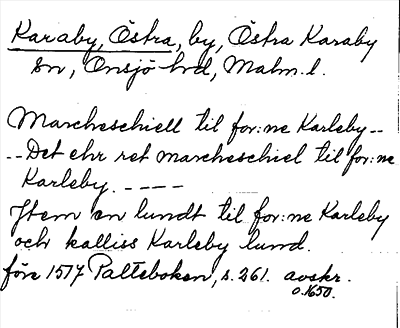 Karaby, Östra, by, Östra Karaby
sn, Onsjö hrd, Malm. l.
Marcheschiell til for:ne Karleby --
-- Det ehr ret marcheschiel til for:ne
Karleby. ----
Jtem en lundt til for:ne Karleby
och kalliss Karleby lund.
före 1517 Palteboken, s. 261. avskr.
o. 1650.